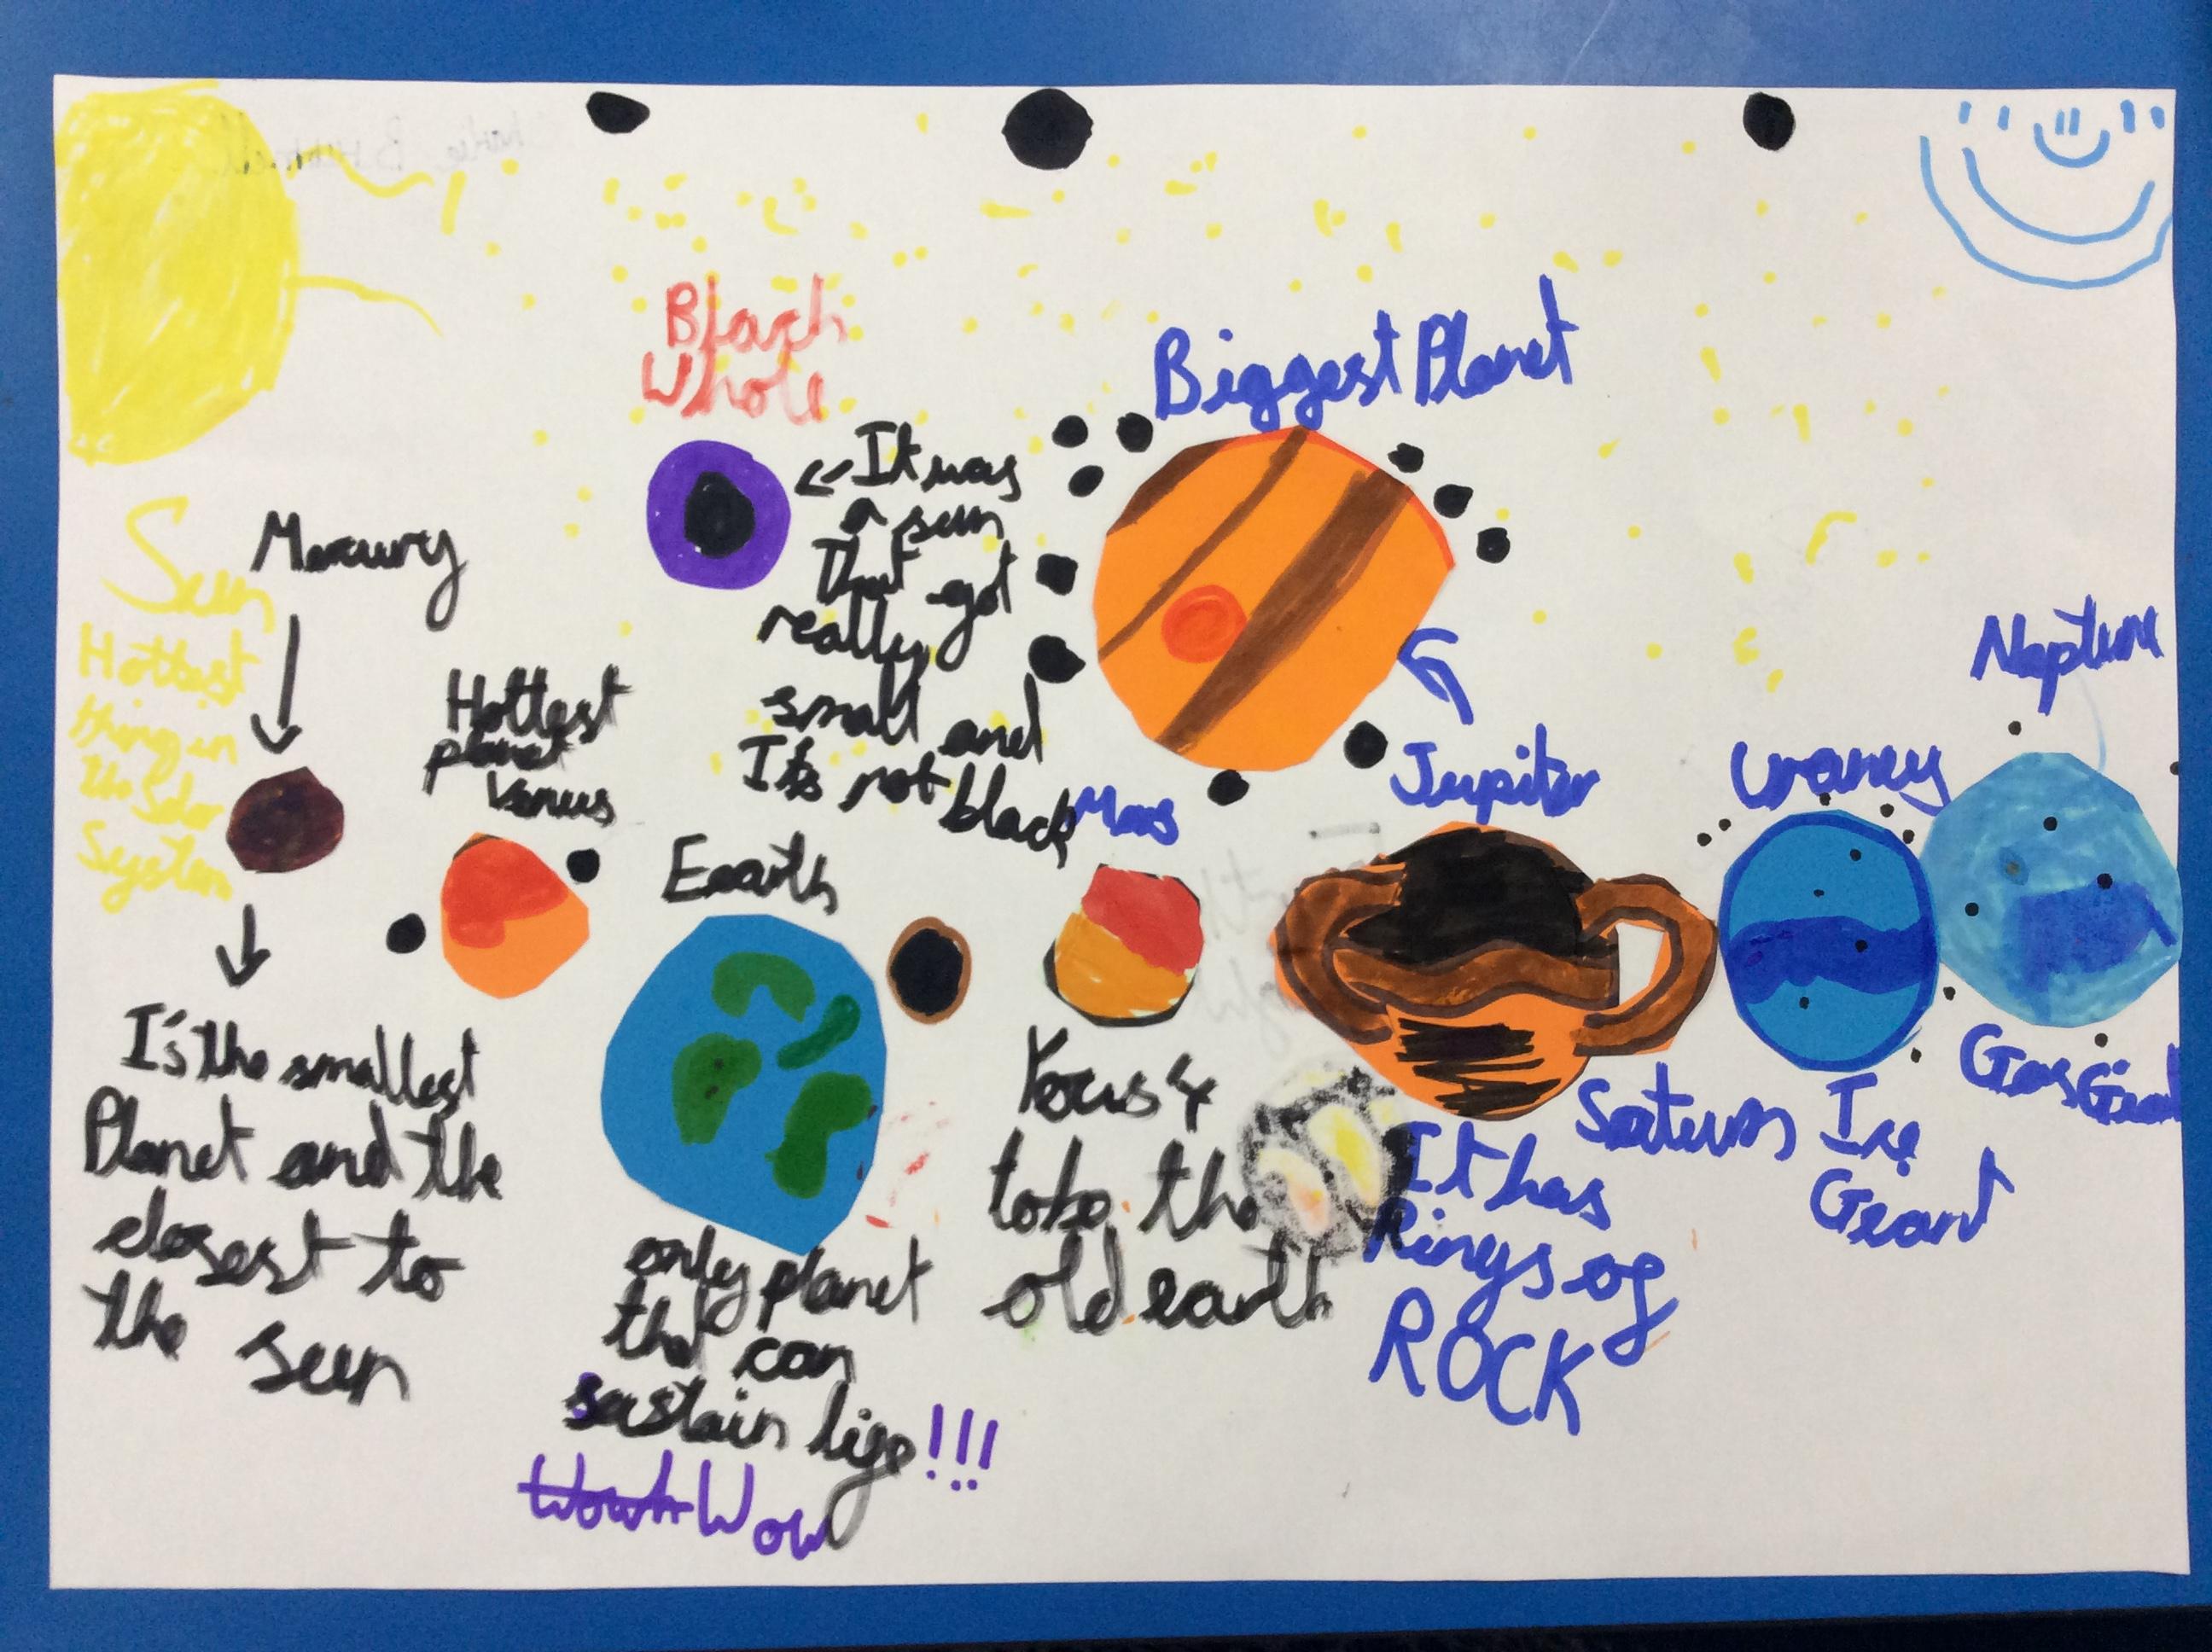 Black
Whole
Biggest Planet
Sun
Hottest
thing in
the Solar
System
Mercury
I'ts the smallest
Planet and the
closest to
the sun
Hottest
planet
Venus
It was
a sun
That got
really
small and
It's not black
Earth
only planet
that can
sustain life!!!
Wow
Mars
tobe the
old earth
Jupiter
Saturn
It has
Rings of
ROCK
Urancy
Ice
Geant
Neptune
Gas Giant